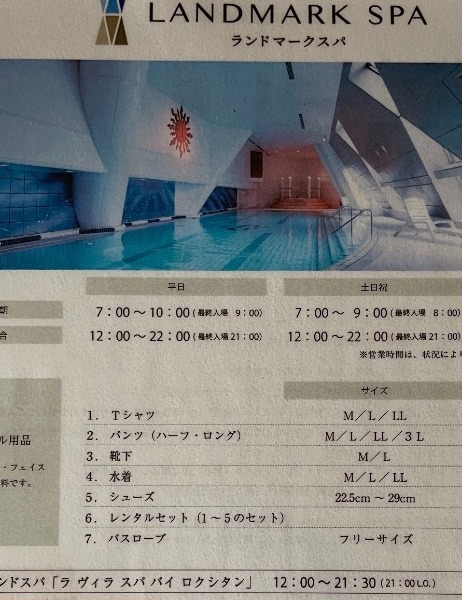 LANDMARK SPA
ランドマークスパ
平日 土日祝
朝 7：00 ～ 10：00 (最終入場 9：00) 7：00 ～ 9：00 (最終入場 8：00)
合 12：00 ～ 22：00 (最終入場 21：00) 12：00 ～ 22：00 (最終入場 21：00)
※営業時間は、状況により
サイズ
1． Tシャツ M／L／LL
2． パンツ（ハーフ・ロング） M／L／LL／3L
3． 靴下 M／L
4． 水着 M／L／LL
5． シューズ 22.5cm ～ 29cm
6． レンタルセット（1～5のセット）
7． バスローブ フリーサイズ
ル用品
・フェイス
料です。
ンドスパ「ラ ヴィラ スパ バイ ロクシタン」 12：00 ～ 21：30 (21：00 L.O.)